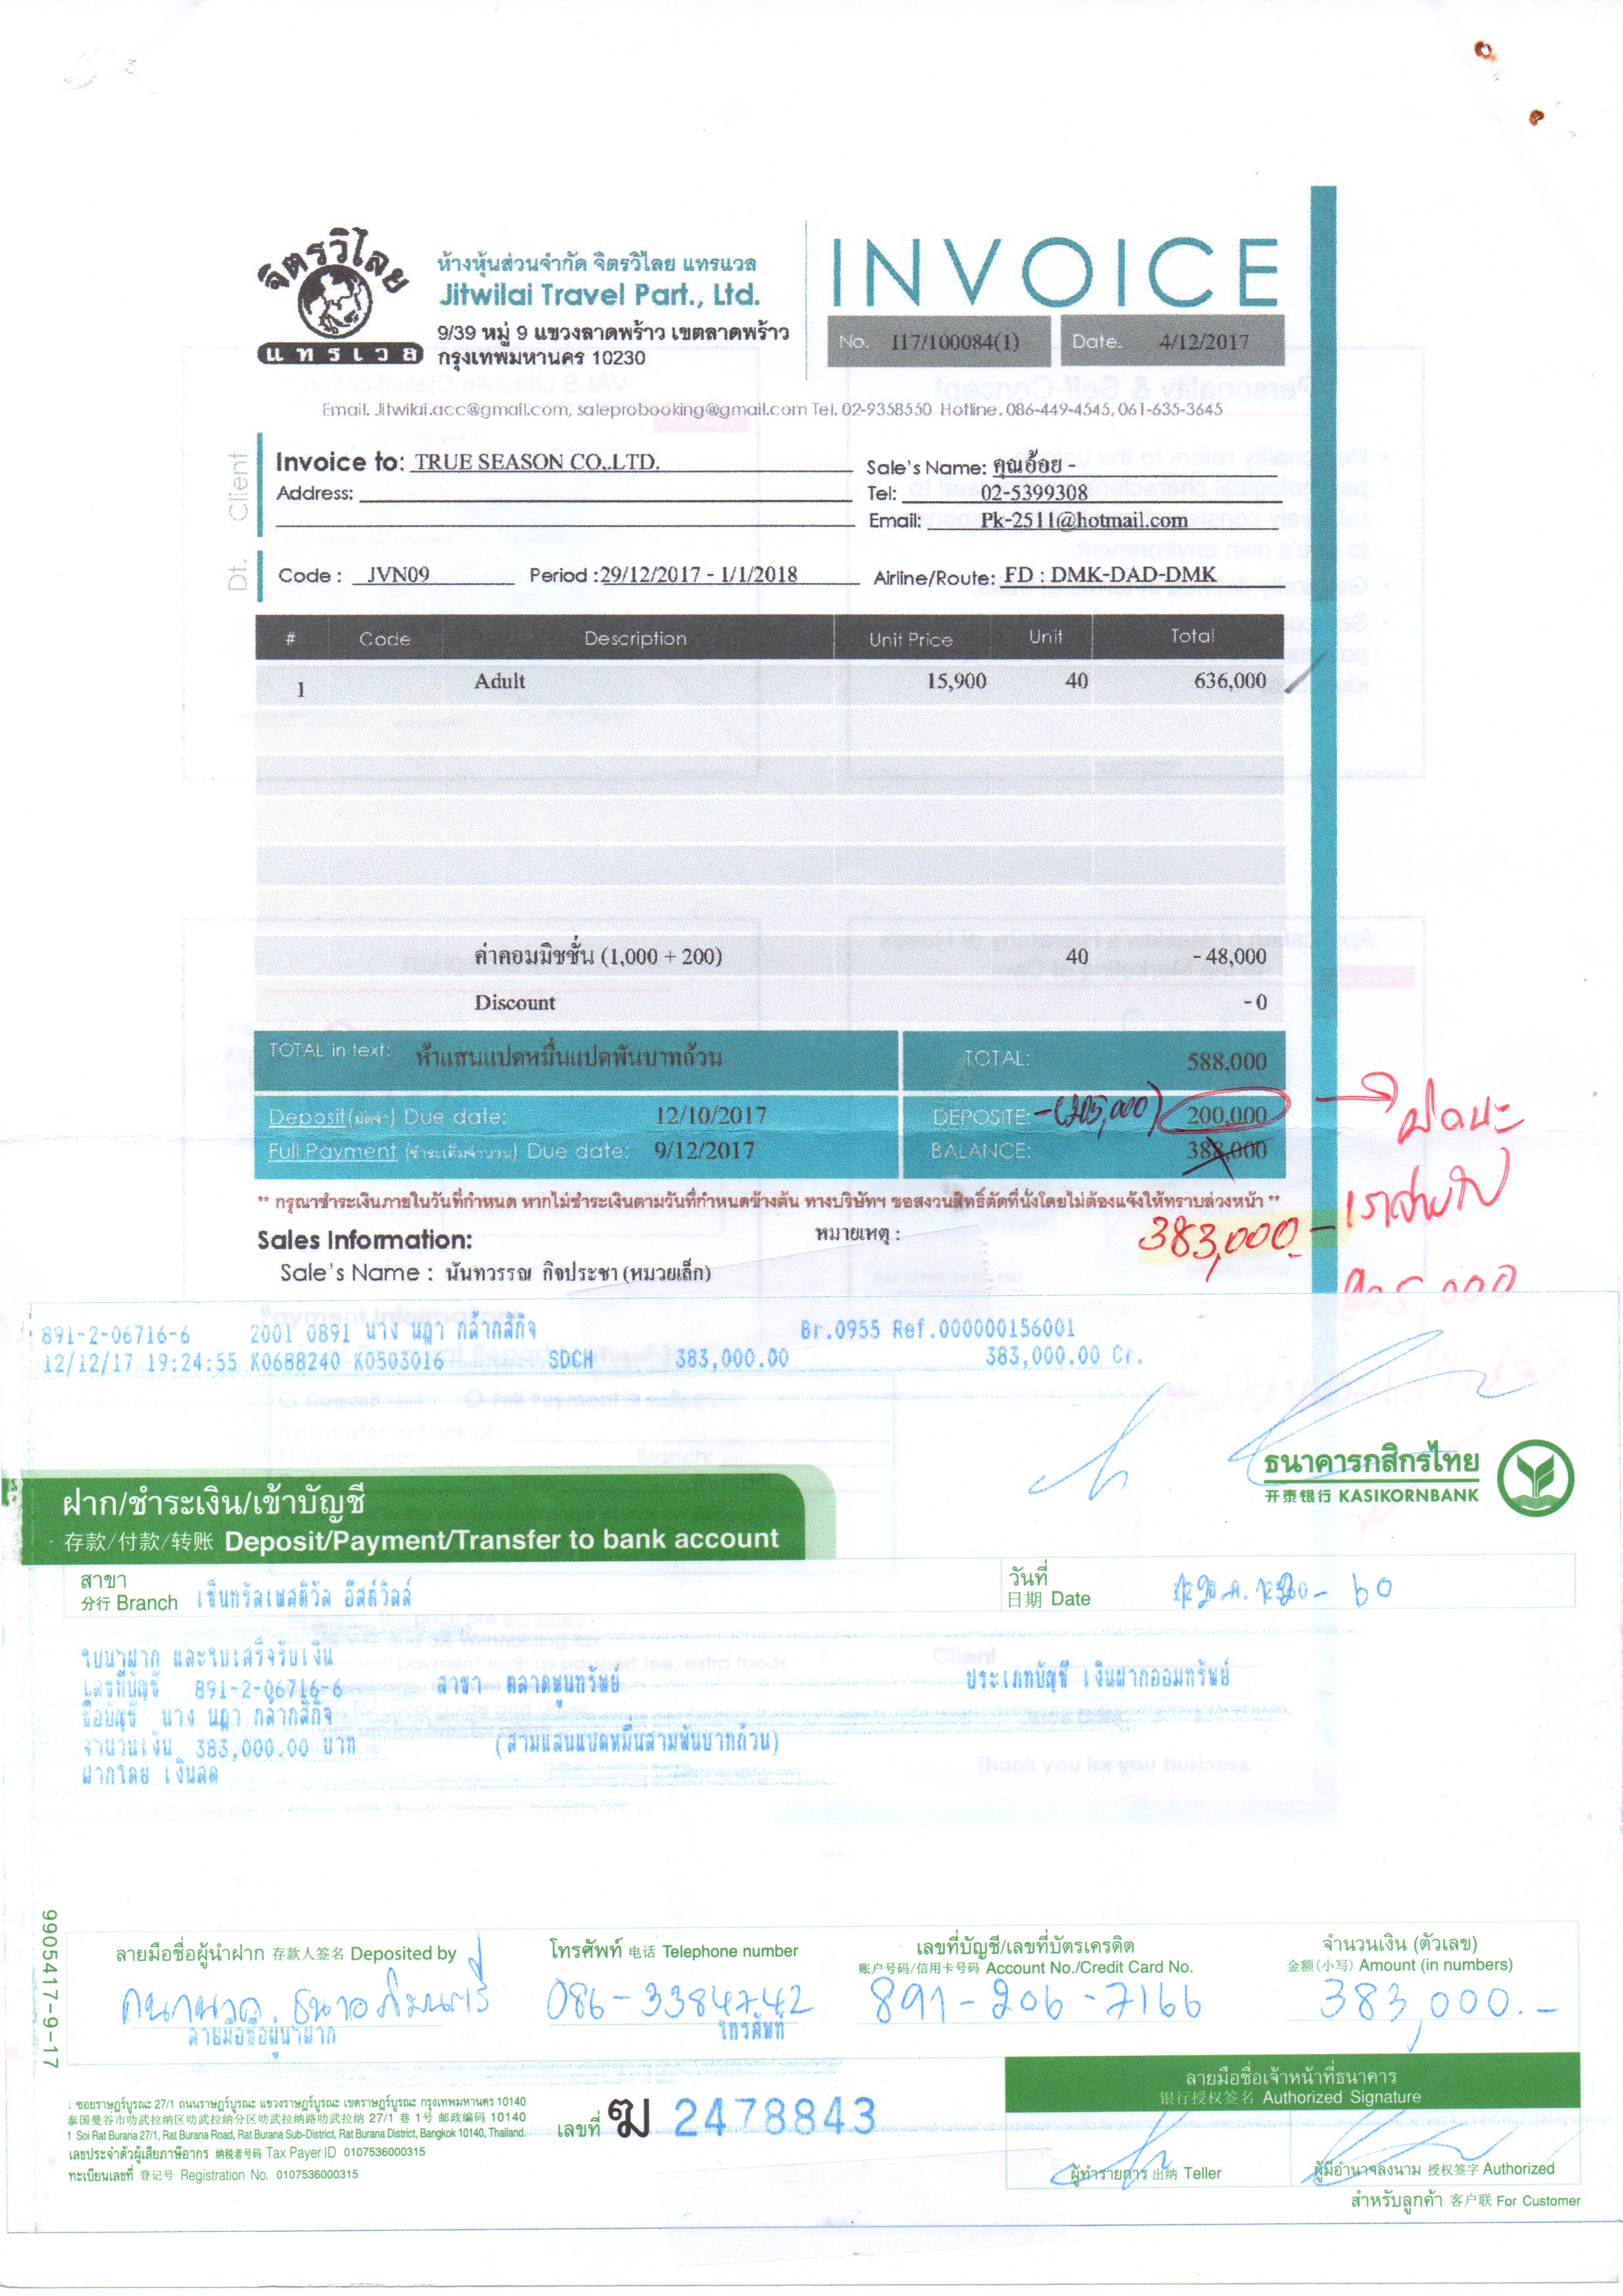 จิตรวิไลย
แทรเวล
ห้างหุ้นส่วนจำกัด จิตรวิไลย แทรแวล
Jitwilai Travel Part., Ltd.
9/39 หมู่ 9 แขวงลาดพร้าว เขตลาดพร้าว
กรุงเทพมหานคร 10230
INVOICE
No. I17/100084(1) Date. 4/12/2017
Email. Jitwilai.acc@gmail.com, saleprobooking@gmail.com Tel. 02-9358550 Hotline. 086-449-4545, 061-635-3645
Client
Invoice to: TRUE SEASON CO,.LTD.
Address:
Sale's Name: คุณอ้อย -
Tel: 02-5399308
Email: Pk-2511@hotmail.com
Dt.
Code : JVN09 Period : 29/12/2017 - 1/1/2018 Airline/Route: FD : DMK-DAD-DMK
# Code Description Unit Price Unit Total
1 Adult 15,900 40 636,000
ค่าคอมมิชชั่น (1,000 + 200) 40 - 48,000
Discount - 0
TOTAL in text: ห้าแสนแปดหมื่นแปดพันบาทถ้วน TOTAL: 588,000
Deposit(มัดจำ) Due date: 12/10/2017 DEPOSITE: -(205,000) 200,000
Full Payment (ชำระเต็มจำนวน) Due date: 9/12/2017 BALANCE: 388,000
ผิดนะ
** กรุณาชำระเงินภายในวันที่กำหนด หากไม่ชำระเงินตามวันที่กำหนดข้างต้น ทางบริษัทฯ ขอสงวนสิทธิ์ตัดที่นั่งโดยไม่ต้องแจ้งให้ทราบล่วงหน้า **
383,000.-
205,000
Sales Information: หมายเหตุ :
Sale's Name : นันทวรรณ กิจประชา (หมวยเล็ก)
891-2-06716-6 2001 0891 นาง นฎา กล้ากสิกิจ Br.0955 Ref.000000156001
12/12/17 19:24:55 K0688240 K0503016 SDCH 383,000.00 383,000.00 Cr.
ธนาคารกสิกรไทย
开泰银行 KASIKORNBANK
ฝาก/ชำระเงิน/เข้าบัญชี
存款/付款/转账 Deposit/Payment/Transfer to bank account
สาขา
分行 Branch เซ็นทรัลเฟสติวัล อีสต์วิลล์
วันที่
日期 Date
ใบนำฝาก และใบเสร็จรับเงิน
เลขที่บัญชี 891-2-06716-6 สาขา ตลาดพูนทรัพย์ ประเภทบัญชี เงินฝากออมทรัพย์
ชื่อบัญชี นาง นฎา กล้ากสิกิจ
จำนวนเงิน 383,000.00 บาท (สามแสนแปดหมื่นสามพันบาทถ้วน)
ฝากโดย เงินสด
9905417-9-17
ลายมือชื่อผู้นำฝาก 存款人签名 Deposited by
โทรศัพท์ 电话 Telephone number
เลขที่บัญชี/เลขที่บัตรเครดิต
账户号码/信用卡号码 Account No./Credit Card No.
จำนวนเงิน (ตัวเลข)
金额(小写) Amount (in numbers)
086-3384742 891-206-7166 383,000.-
ลายมือชื่อผู้นำฝาก โทรศัพท์
ลายมือชื่อเจ้าหน้าที่ธนาคาร
银行授权签名 Authorized Signature
ซอยราษฎร์บูรณะ 27/1 ถนนราษฎร์บูรณะ แขวงราษฎร์บูรณะ เขตราษฎร์บูรณะ กรุงเทพมหานคร 10140
泰国曼谷市叻武拉纳区叻武拉纳分区叻武拉纳路叻武拉纳 27/1 巷 1号 邮政编码 10140
1 Soi Rat Burana 27/1, Rat Burana Road, Rat Burana Sub-District, Rat Burana District, Bangkok 10140, Thailand.
เลขประจำตัวผู้เสียภาษีอากร 纳税者号码 Tax Payer ID 0107536000315
ทะเบียนเลขที่ 登记号 Registration No. 0107536000315
เลขที่ ฆ 2478843
ผู้ทำรายการ 出纳 Teller
ผู้มีอำนาจลงนาม 授权签字 Authorized
สำหรับลูกค้า 客户联 For Customer